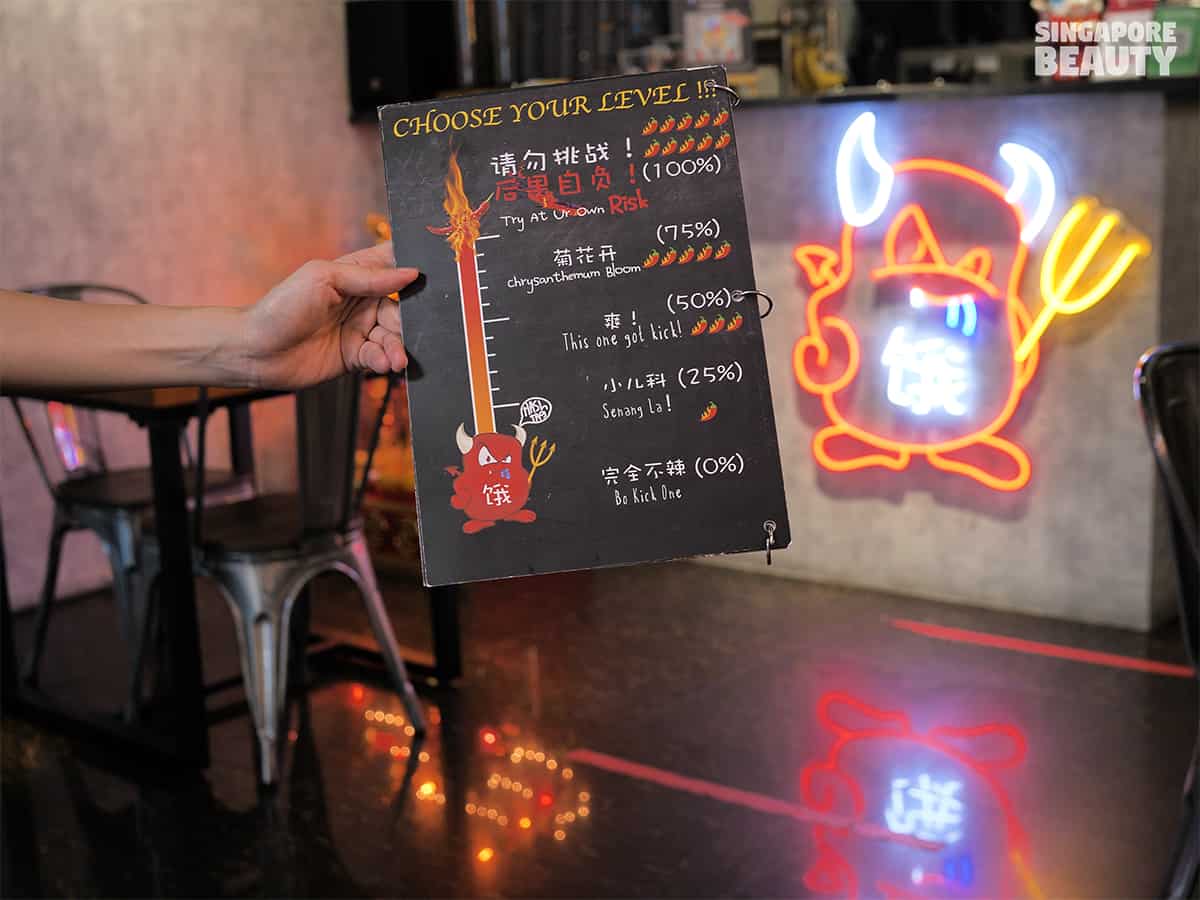 SINGAPORE
BEAUTY
CHOOSE YOUR LEVEL !!!
请勿挑战！
后果自负！(100%)
Try At Ur Own Risk
(75%)
菊花开
chrysanthemum Bloom
(50%)
爽！
This one got kick!
小儿科 (25%)
Senang La!
完全不辣 (0%)
Bo Kick One
饿
饿